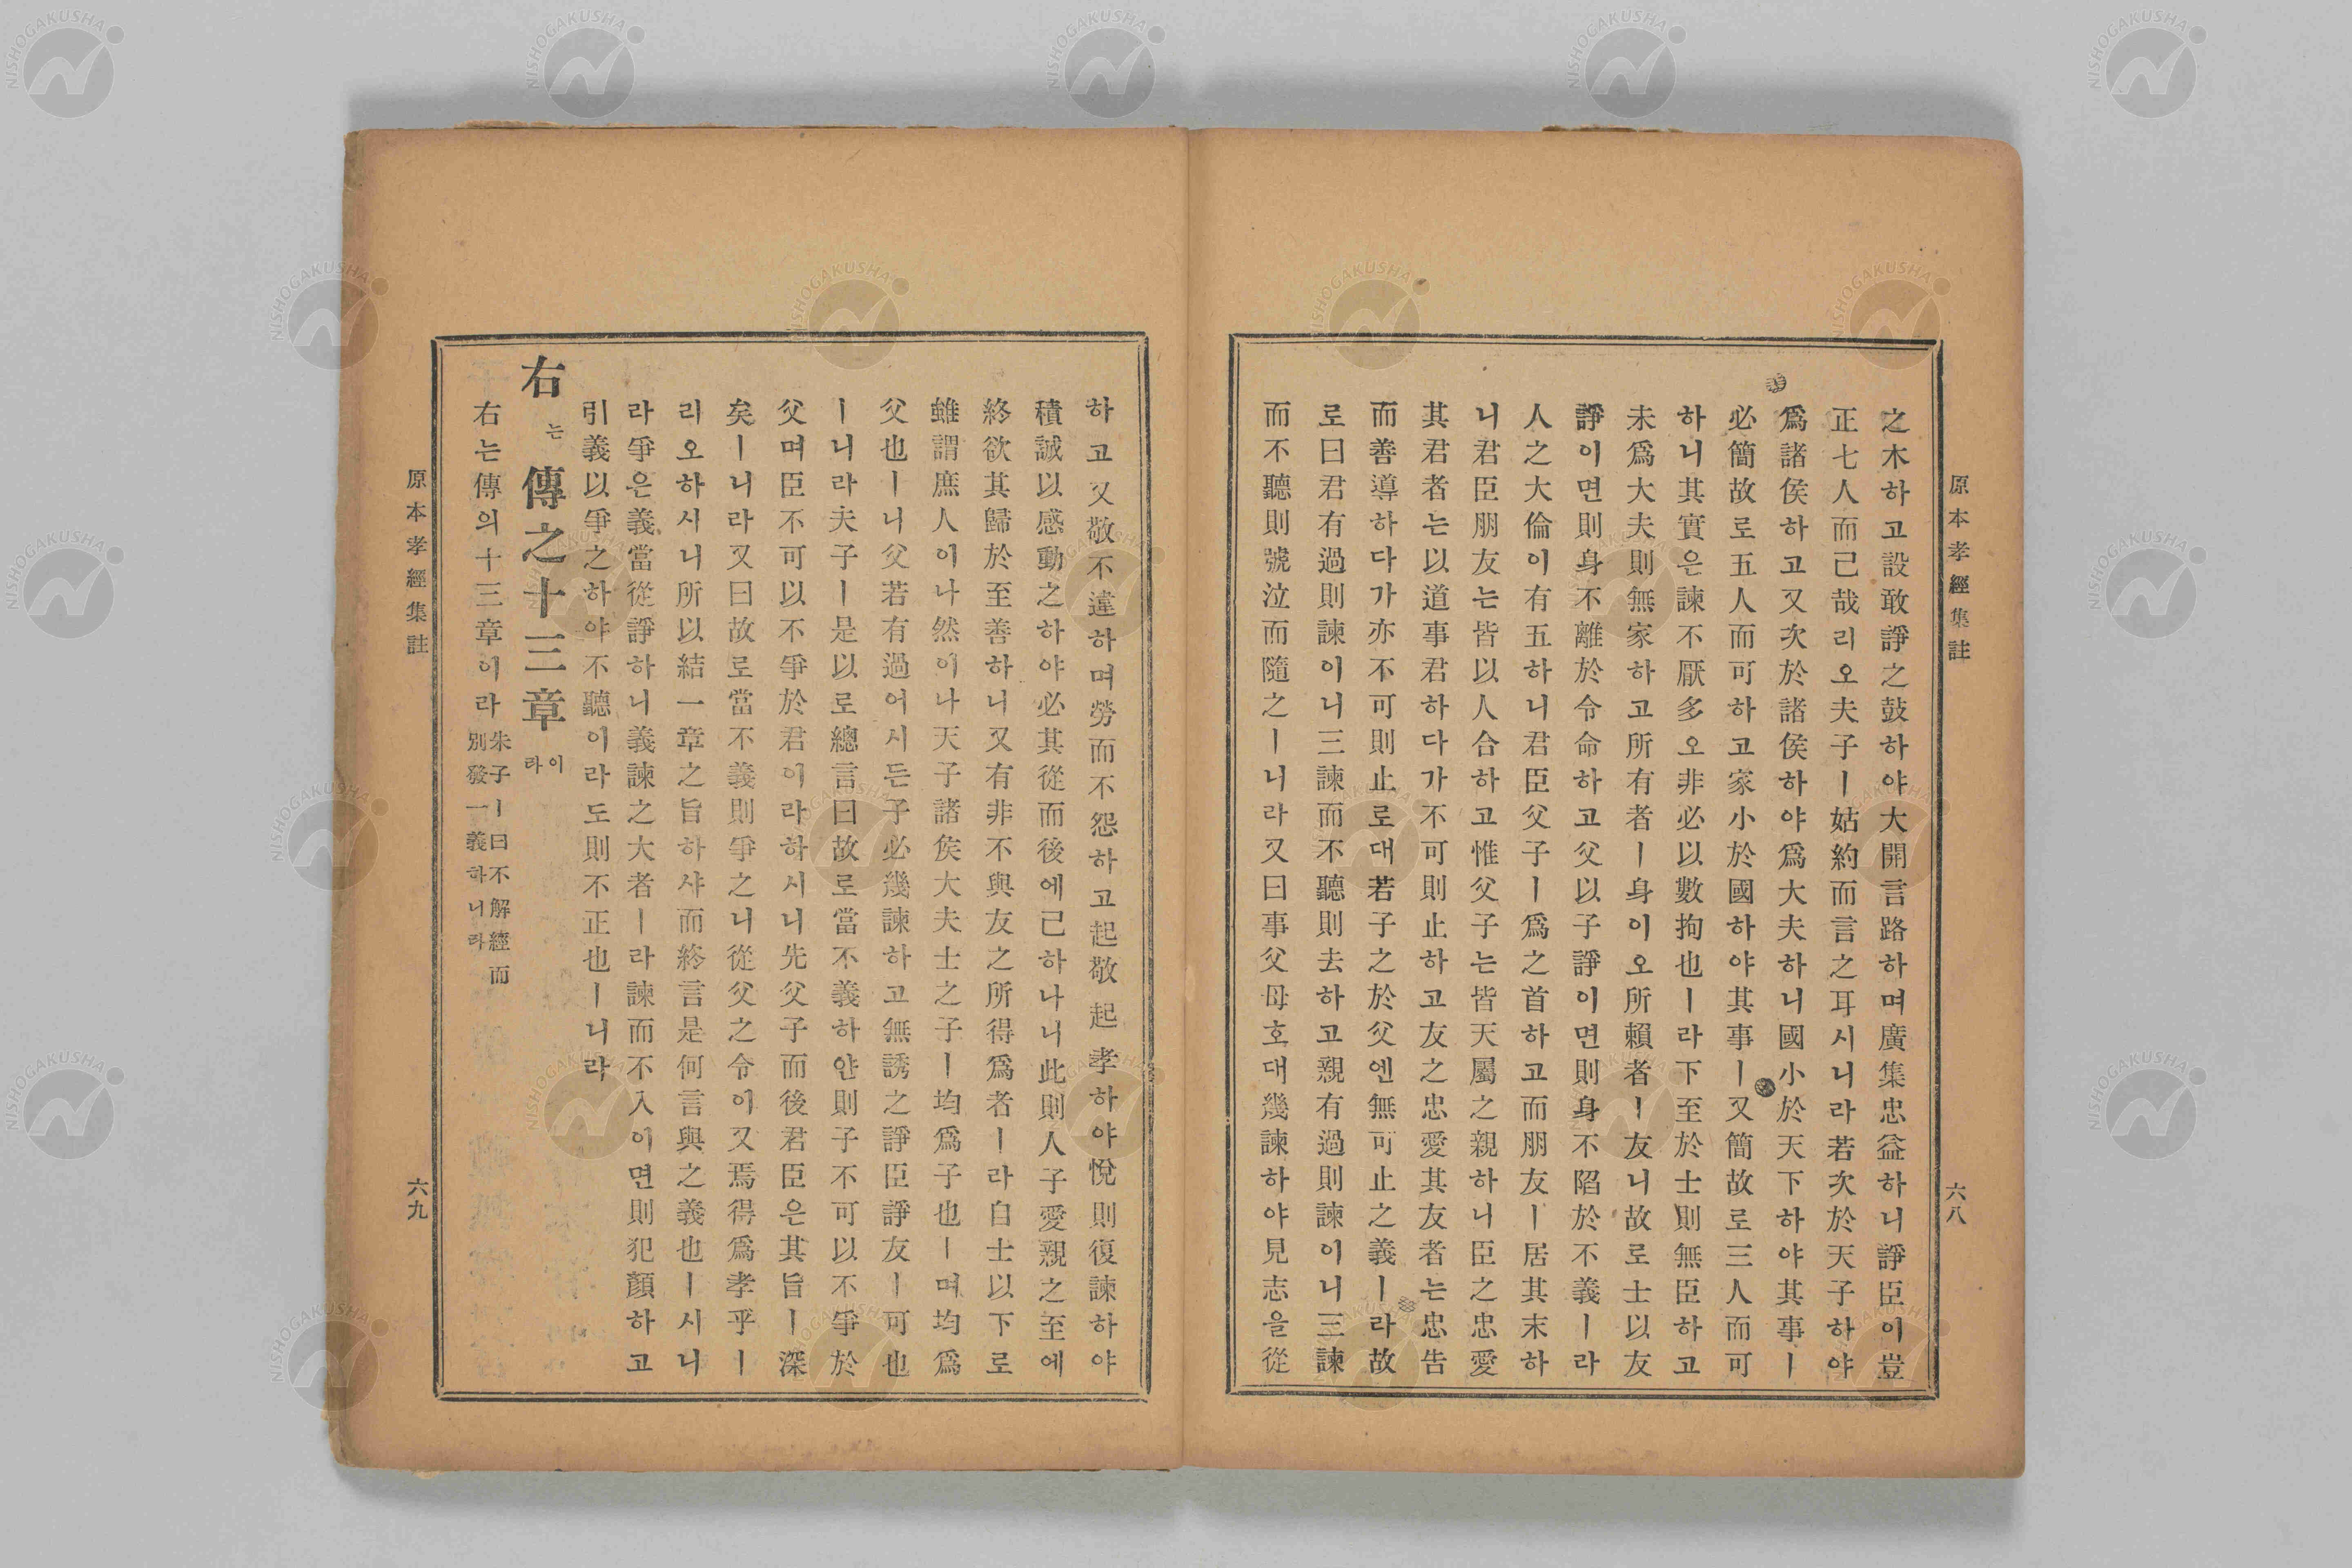 原本孝經集註
六八
之木하고設敢諍之鼓하야大開言路하며廣集忠益하니諍臣이豈
正七人而己哉리오夫子ㅣ姑約而言之耳시니라若次於天子하야
爲諸侯하고又次於諸侯하야爲大夫하니國小於天下하야其事ㅣ
必簡故로五人而可하고家小於國하야其事ㅣ又簡故로三人而可
하니其實은諫不厭多오非必以數拘也ㅣ라下至於士則無臣하고
未爲大夫則無家하고所有者ㅣ身이오所賴者ㅣ友니故로士以友
諍이면則身不離於令命하고父以子諍이면則身不陷於不義ㅣ라
人之大倫이有五하니君臣父子ㅣ爲之首하고而朋友ㅣ居其末하
니君臣朋友는皆以人合하고惟父子는皆天屬之親하니臣之忠愛
其君者는以道事君하다가不可則止하고友之忠愛其友者는忠告
而善導하다가亦不可則止로대若子之於父엔無可止之義ㅣ라故
로曰君有過則諫이니三諫而不聽則去하고親有過則諫이니三諫
而不聽則號泣而隨之ㅣ니라又曰事父母호대幾諫하야見志을從
하고又敬不違하며勞而不怨하고起敬起孝하야悅則復諫하야
積誠以感動之하야必其從而後에己하나니此則人子愛親之至에
終欲其歸於至善하니又有非不與友之所得爲者ㅣ라自士以下로
雖謂庶人이나然이나天子諸侯大夫士之子ㅣ均爲子也ㅣ며均爲
父也ㅣ니父若有過어시든子必幾諫하고無誘之諍臣諍友ㅣ可也
ㅣ니라夫子ㅣ是以로總言曰故로當不義하얀則子不可以不爭於
父며臣不可以不爭於君이라하시니先父子而後君臣은其旨ㅣ深
矣ㅣ니라又曰故로當不義則爭之니從父之令이又焉得爲孝乎ㅣ
리오하시니所以結一章之旨하샤而終言是何言與之義也ㅣ시니
라爭은義當從諍하니義諫之大者ㅣ라諫而不入이면則犯顔하고
引義以爭之하야不聽이라도則不正也ㅣ니라
右는傳之十三章이라
右는傳의十三章이라朱子ㅣ曰不解經而
別發一義하니라
原本孝經集註
六九